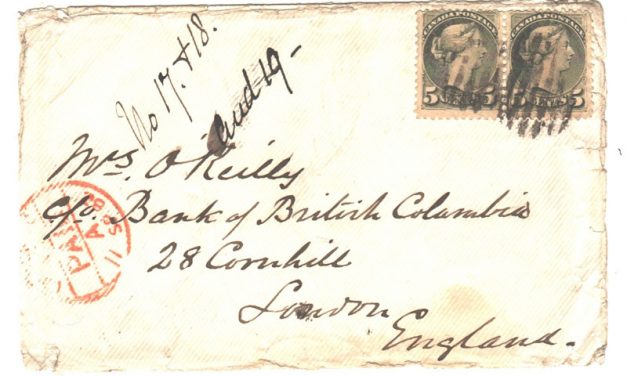 CANADA POSTAGE CANADA POSTAGE
5 CENTS 5 5 CENTS 5
No 17. & 18.
and 19-
Mrs. O'Reilly
c/o. Bank of British Columbia
28 Cornhill
London
England.
PAI
AP
11